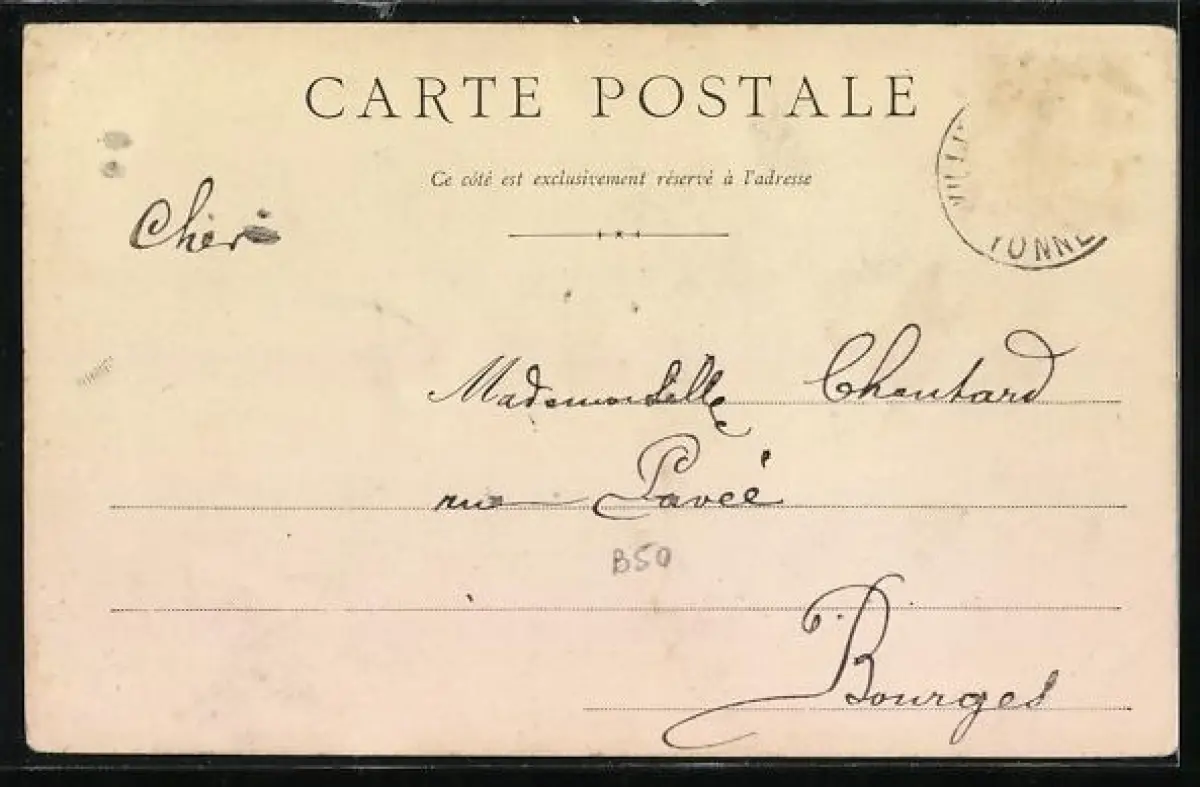 CARTE POSTALE
Ce côté est exclusivement réservé à l'adresse
VILL
YONNE
Cher
Mademoiselle Chentard
rue Pavée
B50
Bourges